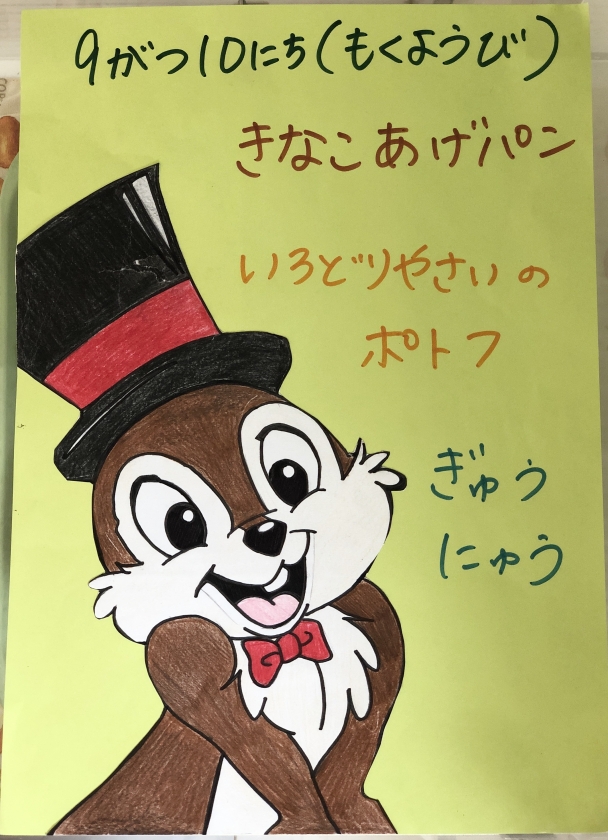 9がつ10にち(もくようび)
きなこあげパン
いろどりやさいの
ポトフ
ぎゅう
にゅう